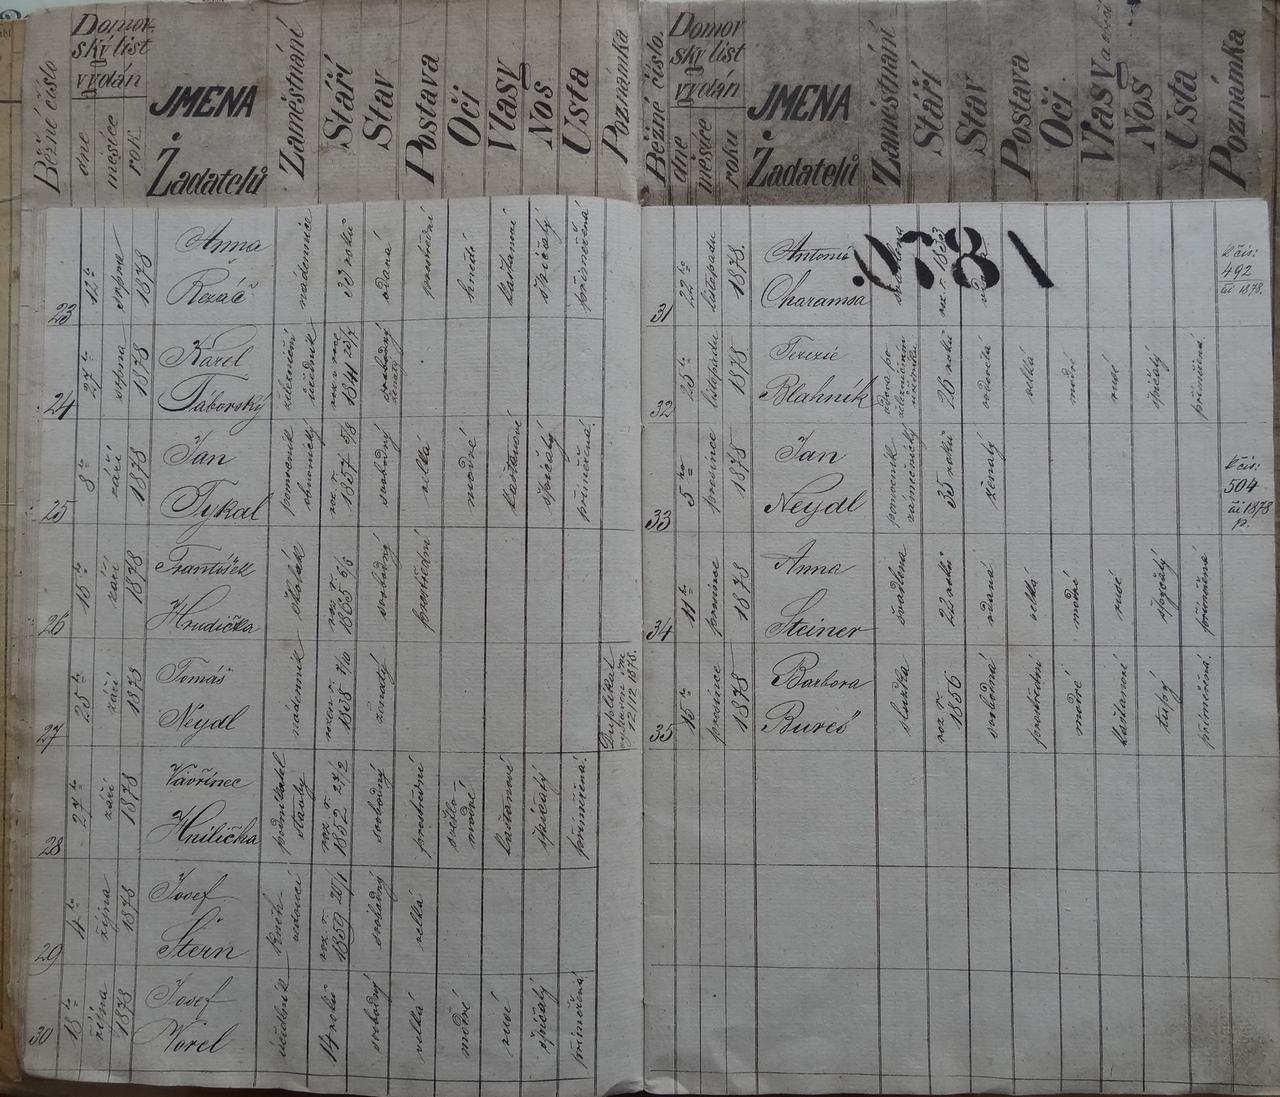 Běžné číslo
Domov-
ský list
vydán
dne
měsíce
roku
JMENA
Žadatelů
Zaměstnání
Stáří
Stav
Postava
Oči
Vlasy
Nos
Usta
Poznámka
23
12ho
srpna
1878
Anna
Rezáč
nádenice
33 roků
vdaná
prostřední
hnedé
kaštanové
špičatý
přiměřená
24
27ho
srpna
1878
Karel
Táborský
železniční
úředník
1841 20/7
svobodný
ženatý
25
8ho
září
1878
Jan
Tykal
pomocník
obuvnický
roz. r.
1857 5/8
svobodný
velká
modré
kaštanové
špičatý
přiměřená.
26
15ho
září
1878
František
Hrudička
školák
roz. r.
1865 6/6
svobodný
prostřední
27
25ho
září
1878
Tomáš
Neydl
nádenník
rozen r.
1838 7/10
ženatý
Duplikát
vystaven dne
12/12 1878.
28
27ho
září
1878
Vavřinec
Hnilička
podnikatel
stavby
roz. r.
1852 27/2
svobodný
prostřední
světlo-
modré
kaštanové
špičatý
přiměřená.
29
4ho
října
1878
Josef
Štern
kněh-
vedoucí
roz. r.
1859 20/1
svobodný
velká
30
18ho
října
1878
Josef
Vorel
učedník
14 roků
svobodný
velká
modré
rusé
špičatý
přiměřená
Běžné číslo.
Domov
ský list
vydán
dne
měsíce
roku
JMENA
Žadatelů
Zaměstnání
Stáří
Stav
Postava
Oči
Vlasy a obočí
Nos
Usta
Poznámka
31
22ho
listopadu
1878.
Antonie
Charamsa
9781
K čís:
492
ai 1878.
32
25ho
listopadu
1878
Terezie
Blahník
vdova po
železničním
26 roků
ovdovělá
velká
modré
rusé
špičatý
přiměřená.
33
5ho
prosince
1878
Jan
Neydl
pomocník
zámečnický
35 roků
ženatý
K čís:
504
ai 1878
p.
34
11ho
prosince
1878
Anna
Steiner
švadlena
22 roků
vdaná
velká
modré
rusé
špičatý
přiměřená
35
15ho
prosince
1878
Barbora
Bureš
služka
roz. r.
1856
svobodná
prostřední
modré
kaštanové
tupý
přiměřená.